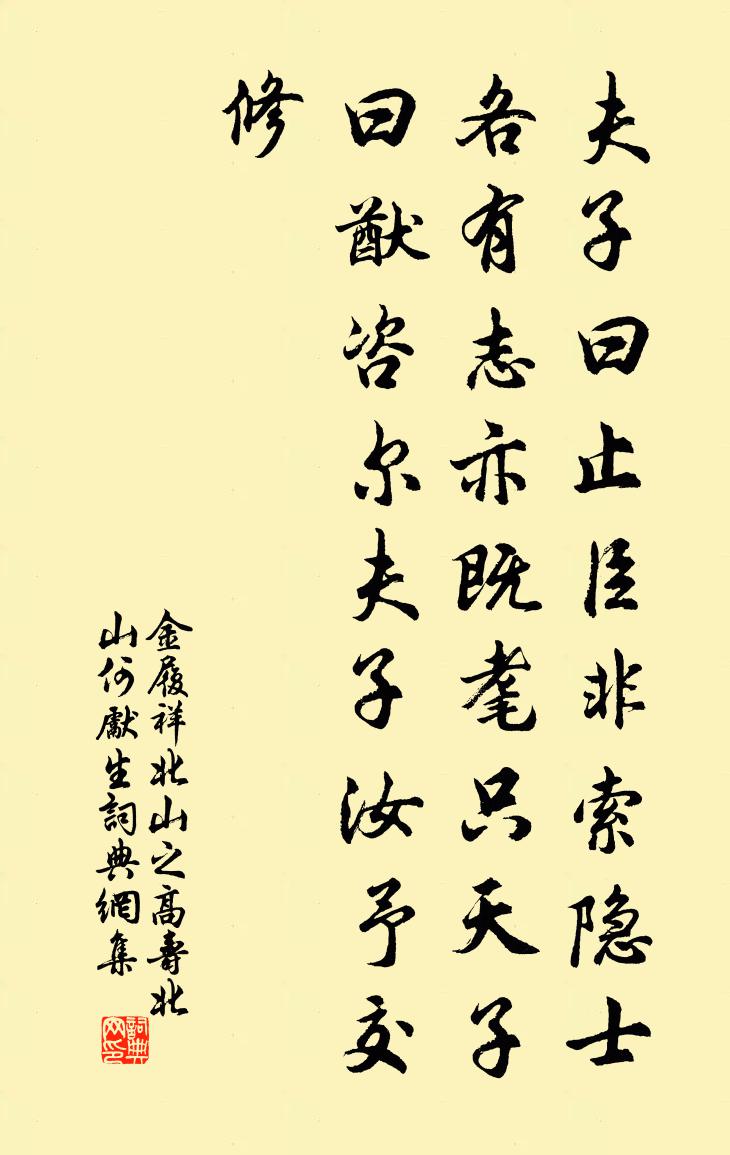 夫子曰止臣非索隐士
各有志亦既耄只天子
曰猷咨尔夫子汝予交
修
金履祥北山之高壽北
山何獻生詞典網集
詞典網印